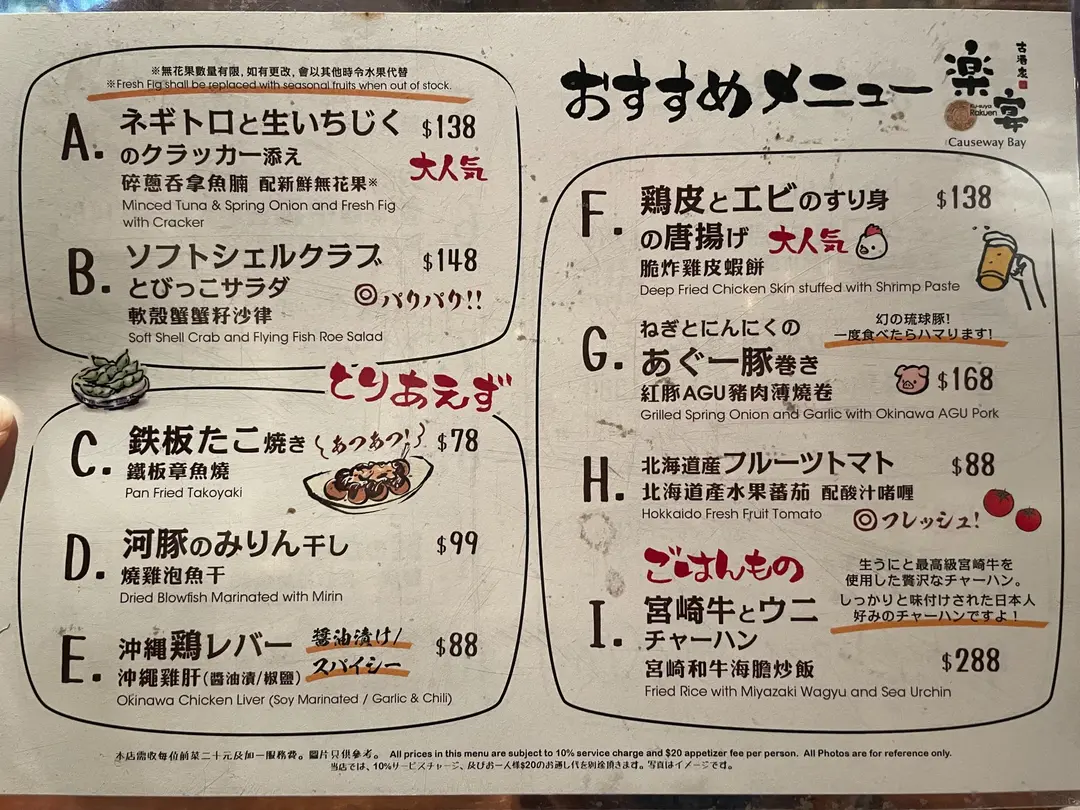 ※無花果數量有限，如有更改，會以其他時令水果代替
※Fresh Fig shall be replaced with seasonal fruits when out of stock.
A. ネギトロと生いちじく $138
のクラッカー添え 大人気
碎蔥吞拿魚腩 配新鮮無花果※
Minced Tuna & Spring Onion and Fresh Fig
with Cracker
B. ソフトシェルクラブ $148
とびっこサラダ ◎パリパリ!!
軟殼蟹蟹籽沙律
Soft Shell Crab and Flying Fish Roe Salad
とりあえず
C. 鉄板たこ焼き あつあつ! $78
鐵板章魚燒
Pan Fried Takoyaki
D. 河豚のみりん干し $99
燒雞泡魚干
Dried Blowfish Marinated with Mirin
E. 沖縄鶏レバー 醤油漬け/ $88
スパイシー
沖繩雞肝(醬油漬/椒鹽)
Okinawa Chicken Liver (Soy Marinated / Garlic & Chili)
おすすめメニュー
古酒家
楽宴
Ku-suya
Rakuen
Causeway Bay
F. 鶏皮とエビのすり身 $138
の唐揚げ 大人気
脆炸雞皮蝦餅
Deep Fried Chicken Skin stuffed with Shrimp Paste
幻の琉球豚!
一度食べたらハマります!
G. ねぎとにんにくの
あぐー豚巻き $168
紅豚AGU豬肉薄燒卷
Grilled Spring Onion and Garlic with Okinawa AGU Pork
H. 北海道産フルーツトマト $88
北海道產水果蕃茄 配酸汁啫喱
Hokkaido Fresh Fruit Tomato ◎フレッシュ!
ごはんもの
生うにと最高級宮崎牛を
使用した贅沢なチャーハン。
しっかりと味付けされた日本人
好みのチャーハンですよ!
I. 宮崎牛とウニ
チャーハン
宮崎和牛海膽炒飯 $288
Fried Rice with Miyazaki Wagyu and Sea Urchin
本店需收每位前菜二十元及加一服務費。圖片只供參考。 All prices in this menu are subject to 10% service charge and $20 appetizer fee per person. All Photos are for reference only.
当店では、10%サービスチャージ、及びお一人様$20のお通し代を別途頂きます。写真はイメージです。